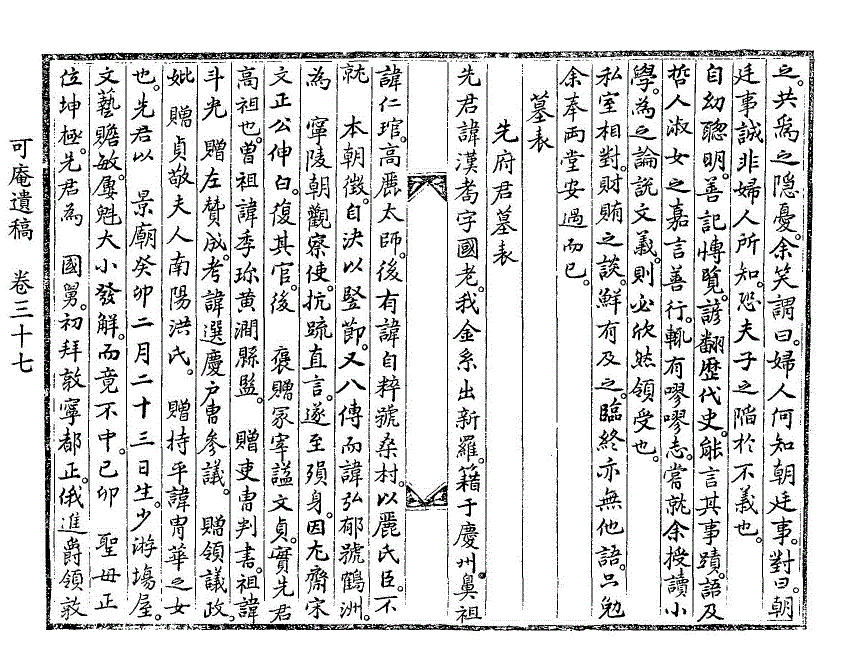 之。共爲之隐憂。余笑謂曰。婦人何知朝廷事。對曰。朝
廷事誠非婦人所知。恐夫子之陷於不義也。
自幼聦明。善記愽覽。諺翻歷代史。能言其事蹟。語及
哲人淑女之嘉言善行。輒有嘐嘐志。嘗就余授讀小
學。爲之論說文義。則必欣然領受也。
私室相對。財賄之談。鮮有及之。臨終亦無他語。只勉
余奉兩堂安過而已。
墓表
先府君墓表
先君諱漢耉字國老。我金系出新羅。籍于慶州。鼻祖
諱仁琯。高麗太師。後有諱自粹號桑村。以麗氏臣。不
就 本朝徵。自決以竪節。又八傳而諱弘郁號鶴洲。
爲 寧陵朝觀察使。抗疏直言。遂至殞身。因尤齋宋
文正公伸白。復其官。後 褒贈冢宰謚文貞。實先君
高祖也。曾祖諱季珍黃澗縣監。 贈吏曹判書。祖諱
斗光 贈左賛成。考諱選慶戶曹參議。 贈領議政。
妣 贈貞敬夫人南陽洪氏。 贈持平諱胄華之女
也。先君以 景廟癸卯二月二十三日生。少游塲屋。
文藝贍敏。屢魁大小發解。而竟不中。己卯 聖母正
位坤極。先君爲 國舅。初拜敦寧都正。俄進爵領敦
可庵遺稿 卷三十七